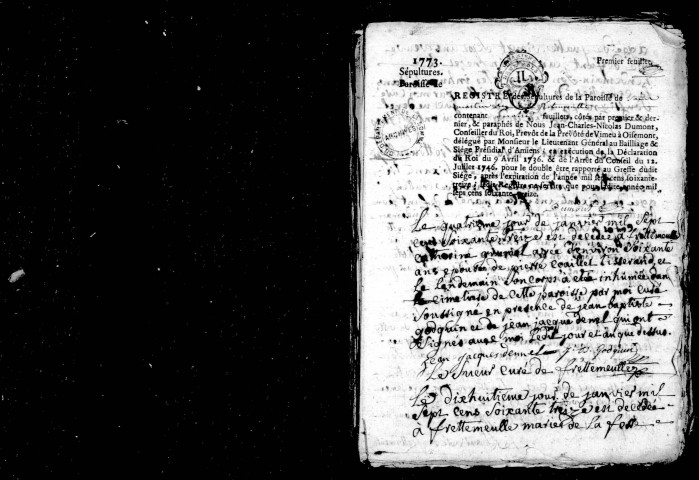 1773.
Premier feuillet
Sépultures.
Paroisse de
REGISTRE des Sépultures de la Paroisse de
contenant feuillets, cotés par premier & der-
nier, & paraphés de Nous Jean-Charles-Nicolas Dumont,
Conseiller du Roi, Prevôt de la Prevôté de Vimeu à Oisemont,
délégué par Monsieur le Lieutenant Général au Bailliage &
Siége Présidial d'Amiens; en exécution de la Déclaration
du Roi du 9 Avril 1736. & de l'Arrêt du Conseil du 12.
Juillet 1746. pour le double être rapporté au Greffe dudit
Siége, après l'expiration de l'année mil sept cens soixante-
treize; ledit Registre ne servira que pour ladite année mil
sept cens soixante-treize.
Le quatrieme jour de janvier mil sept
cens soixante treize est decedee a frettemeulle
catherine agée d'environ soixante
ans epouse de pierre tisserand, et
le lendemain son corps a eté inhumée dans
le cimetiere de cette paroisse par moi curé
soussigné en presence de jean baptiste
godquin et de jean jacque denel qui ont
signés avec moi ledit jour et an que dessus.
jean jacques dennel j: b: Godquin
Le Sueur curé de frettemeulle
Le dixhuitieme jour de janvier mil
sept cens soixante treize est decedée
à frettemeulle marie de la